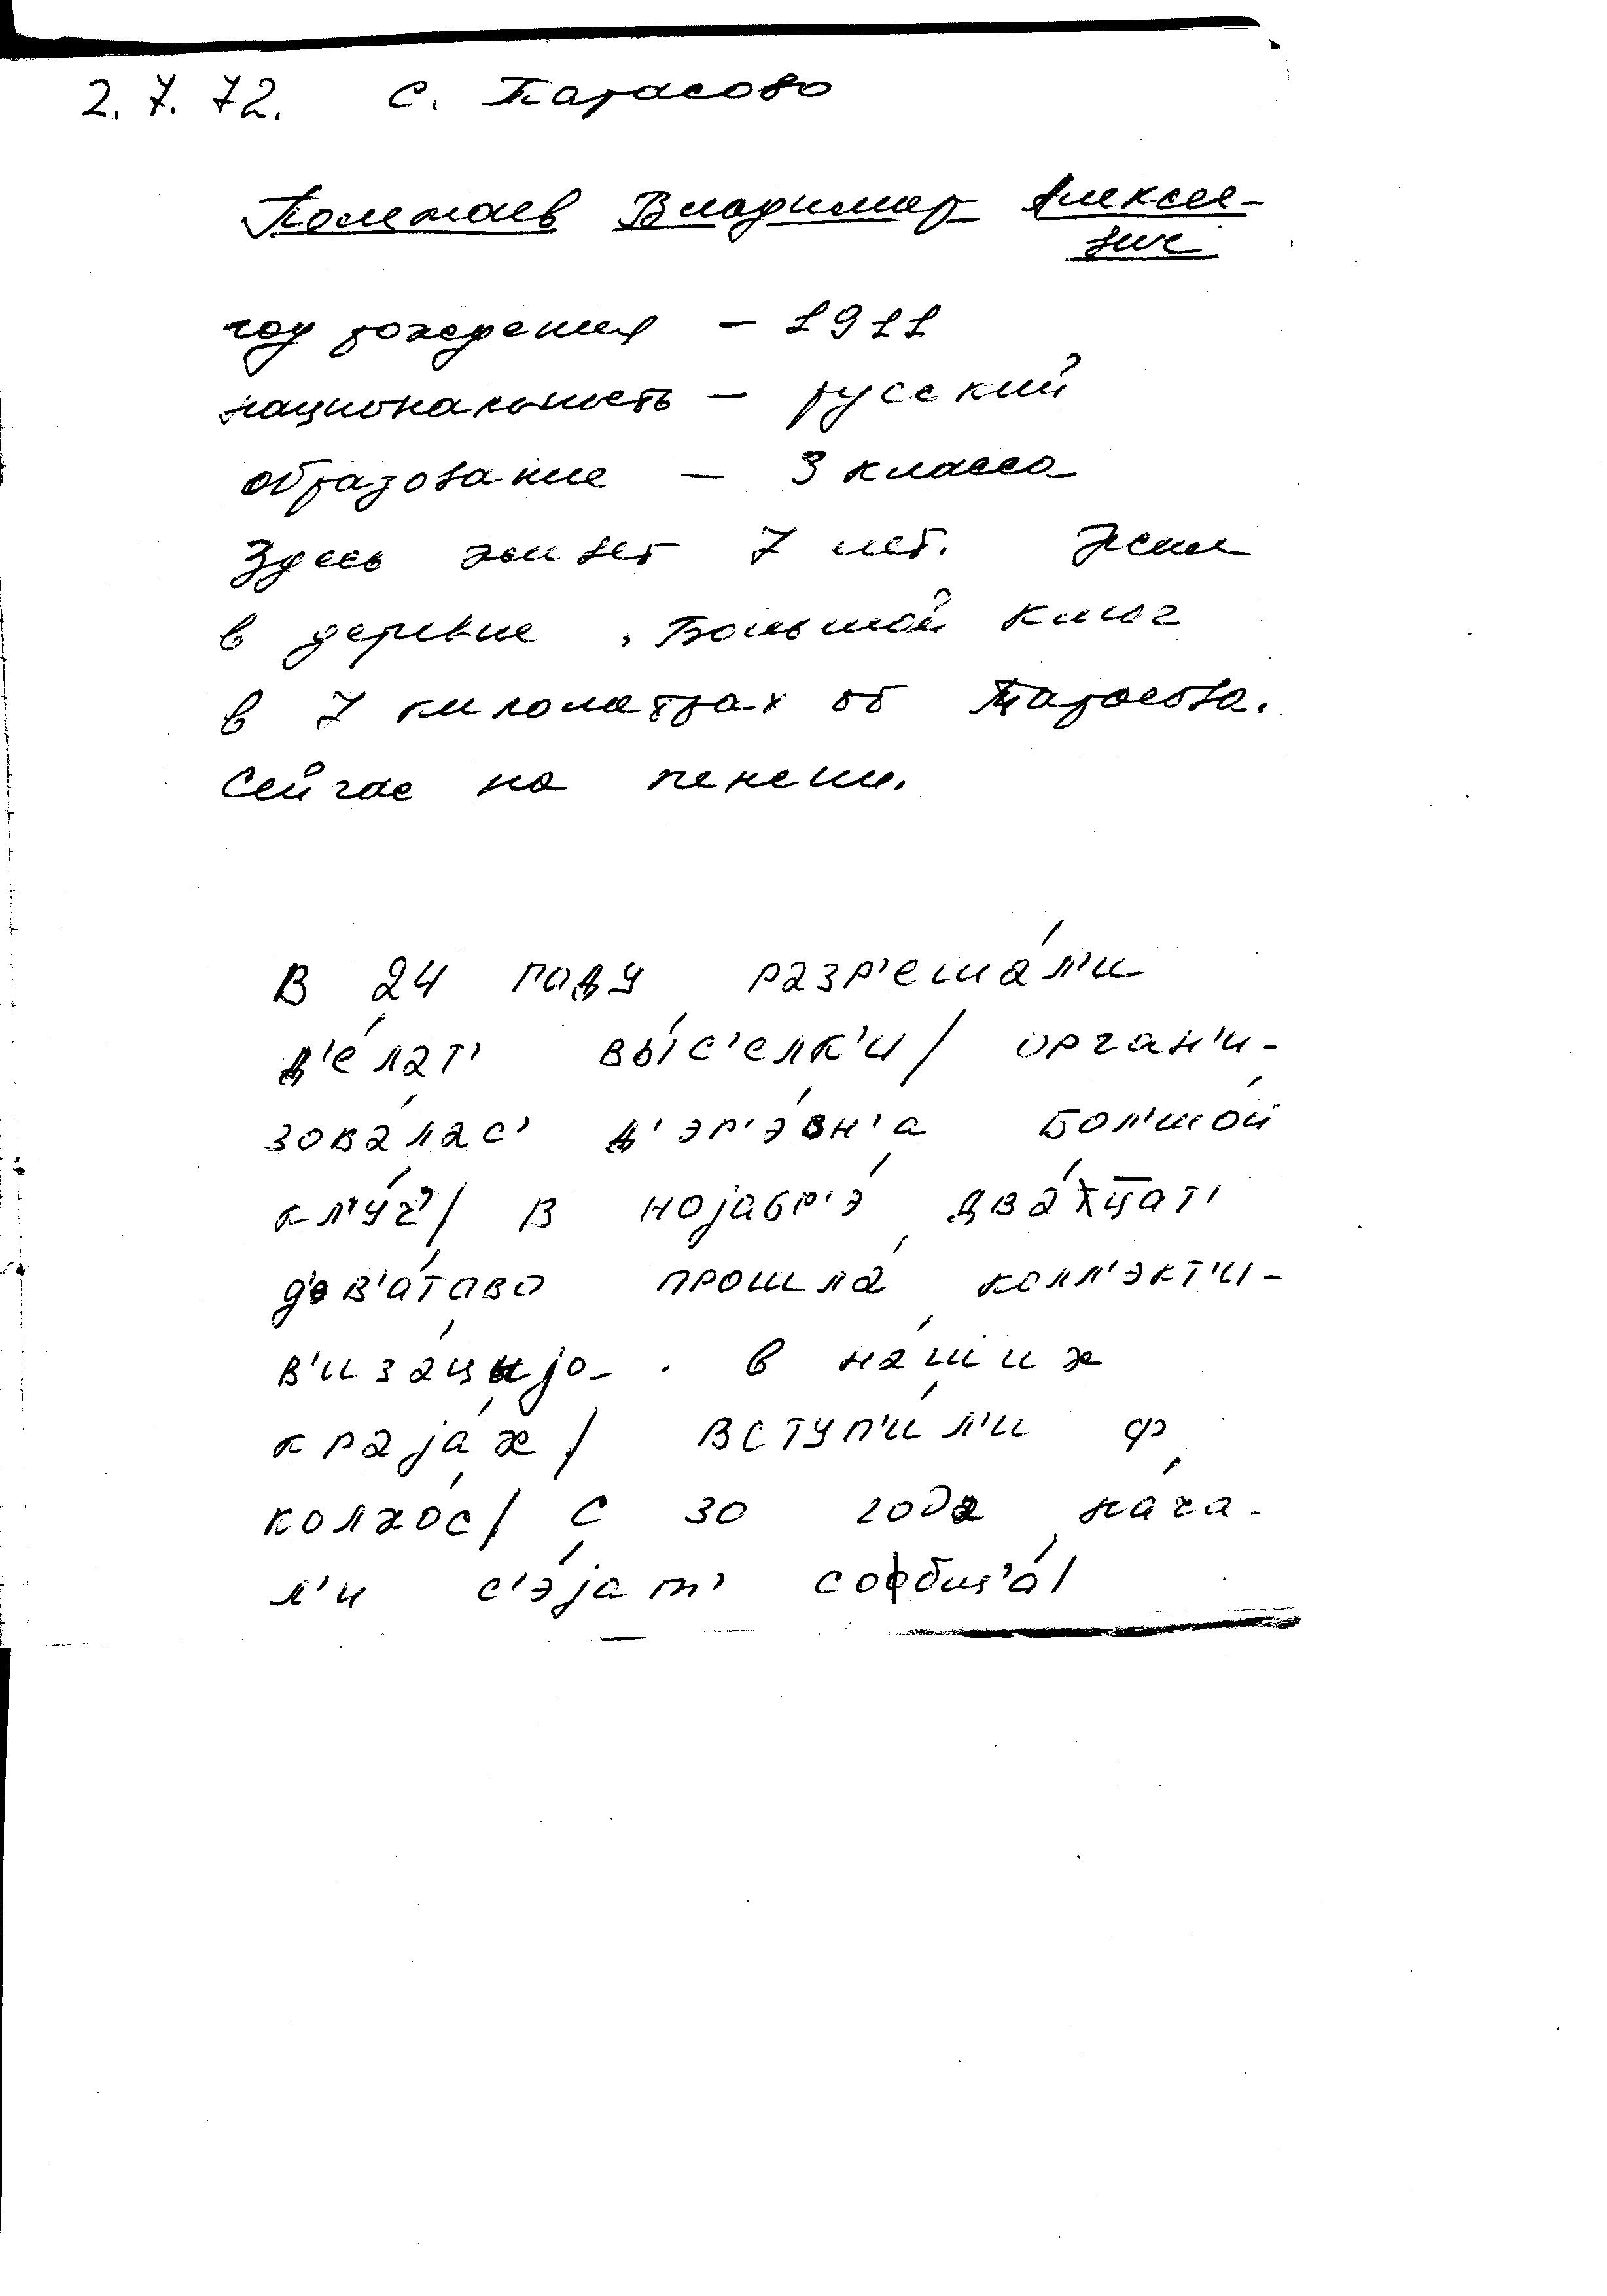 2.7.72. с. Тарасово
Полетаев Владимир Алексее-
вич
год рождения – 1911
национальность – русский
образование – 3 класса
Здесь живет 7 лет. Жил
в деревне Большой Ключ
в 7 километрах от Тарасова.
Сейчас на пенсии.
В 24 году разр'еша́л'и
д'е́лат' вы́с'елк'и / орган'и-
зова́лас' д'эр'э́вн'а бол'шо́й
кл'у́ч' / в нојабр'э́ два́ццат'
д'эв'а́таво прошла́колл'экт'и-
в'иза́цыјо- в на́ших
краја́х / вступ'и́л'и ф
колхо́с / с 30 года на́ча-
л'и с'э́јат' сообща́ /